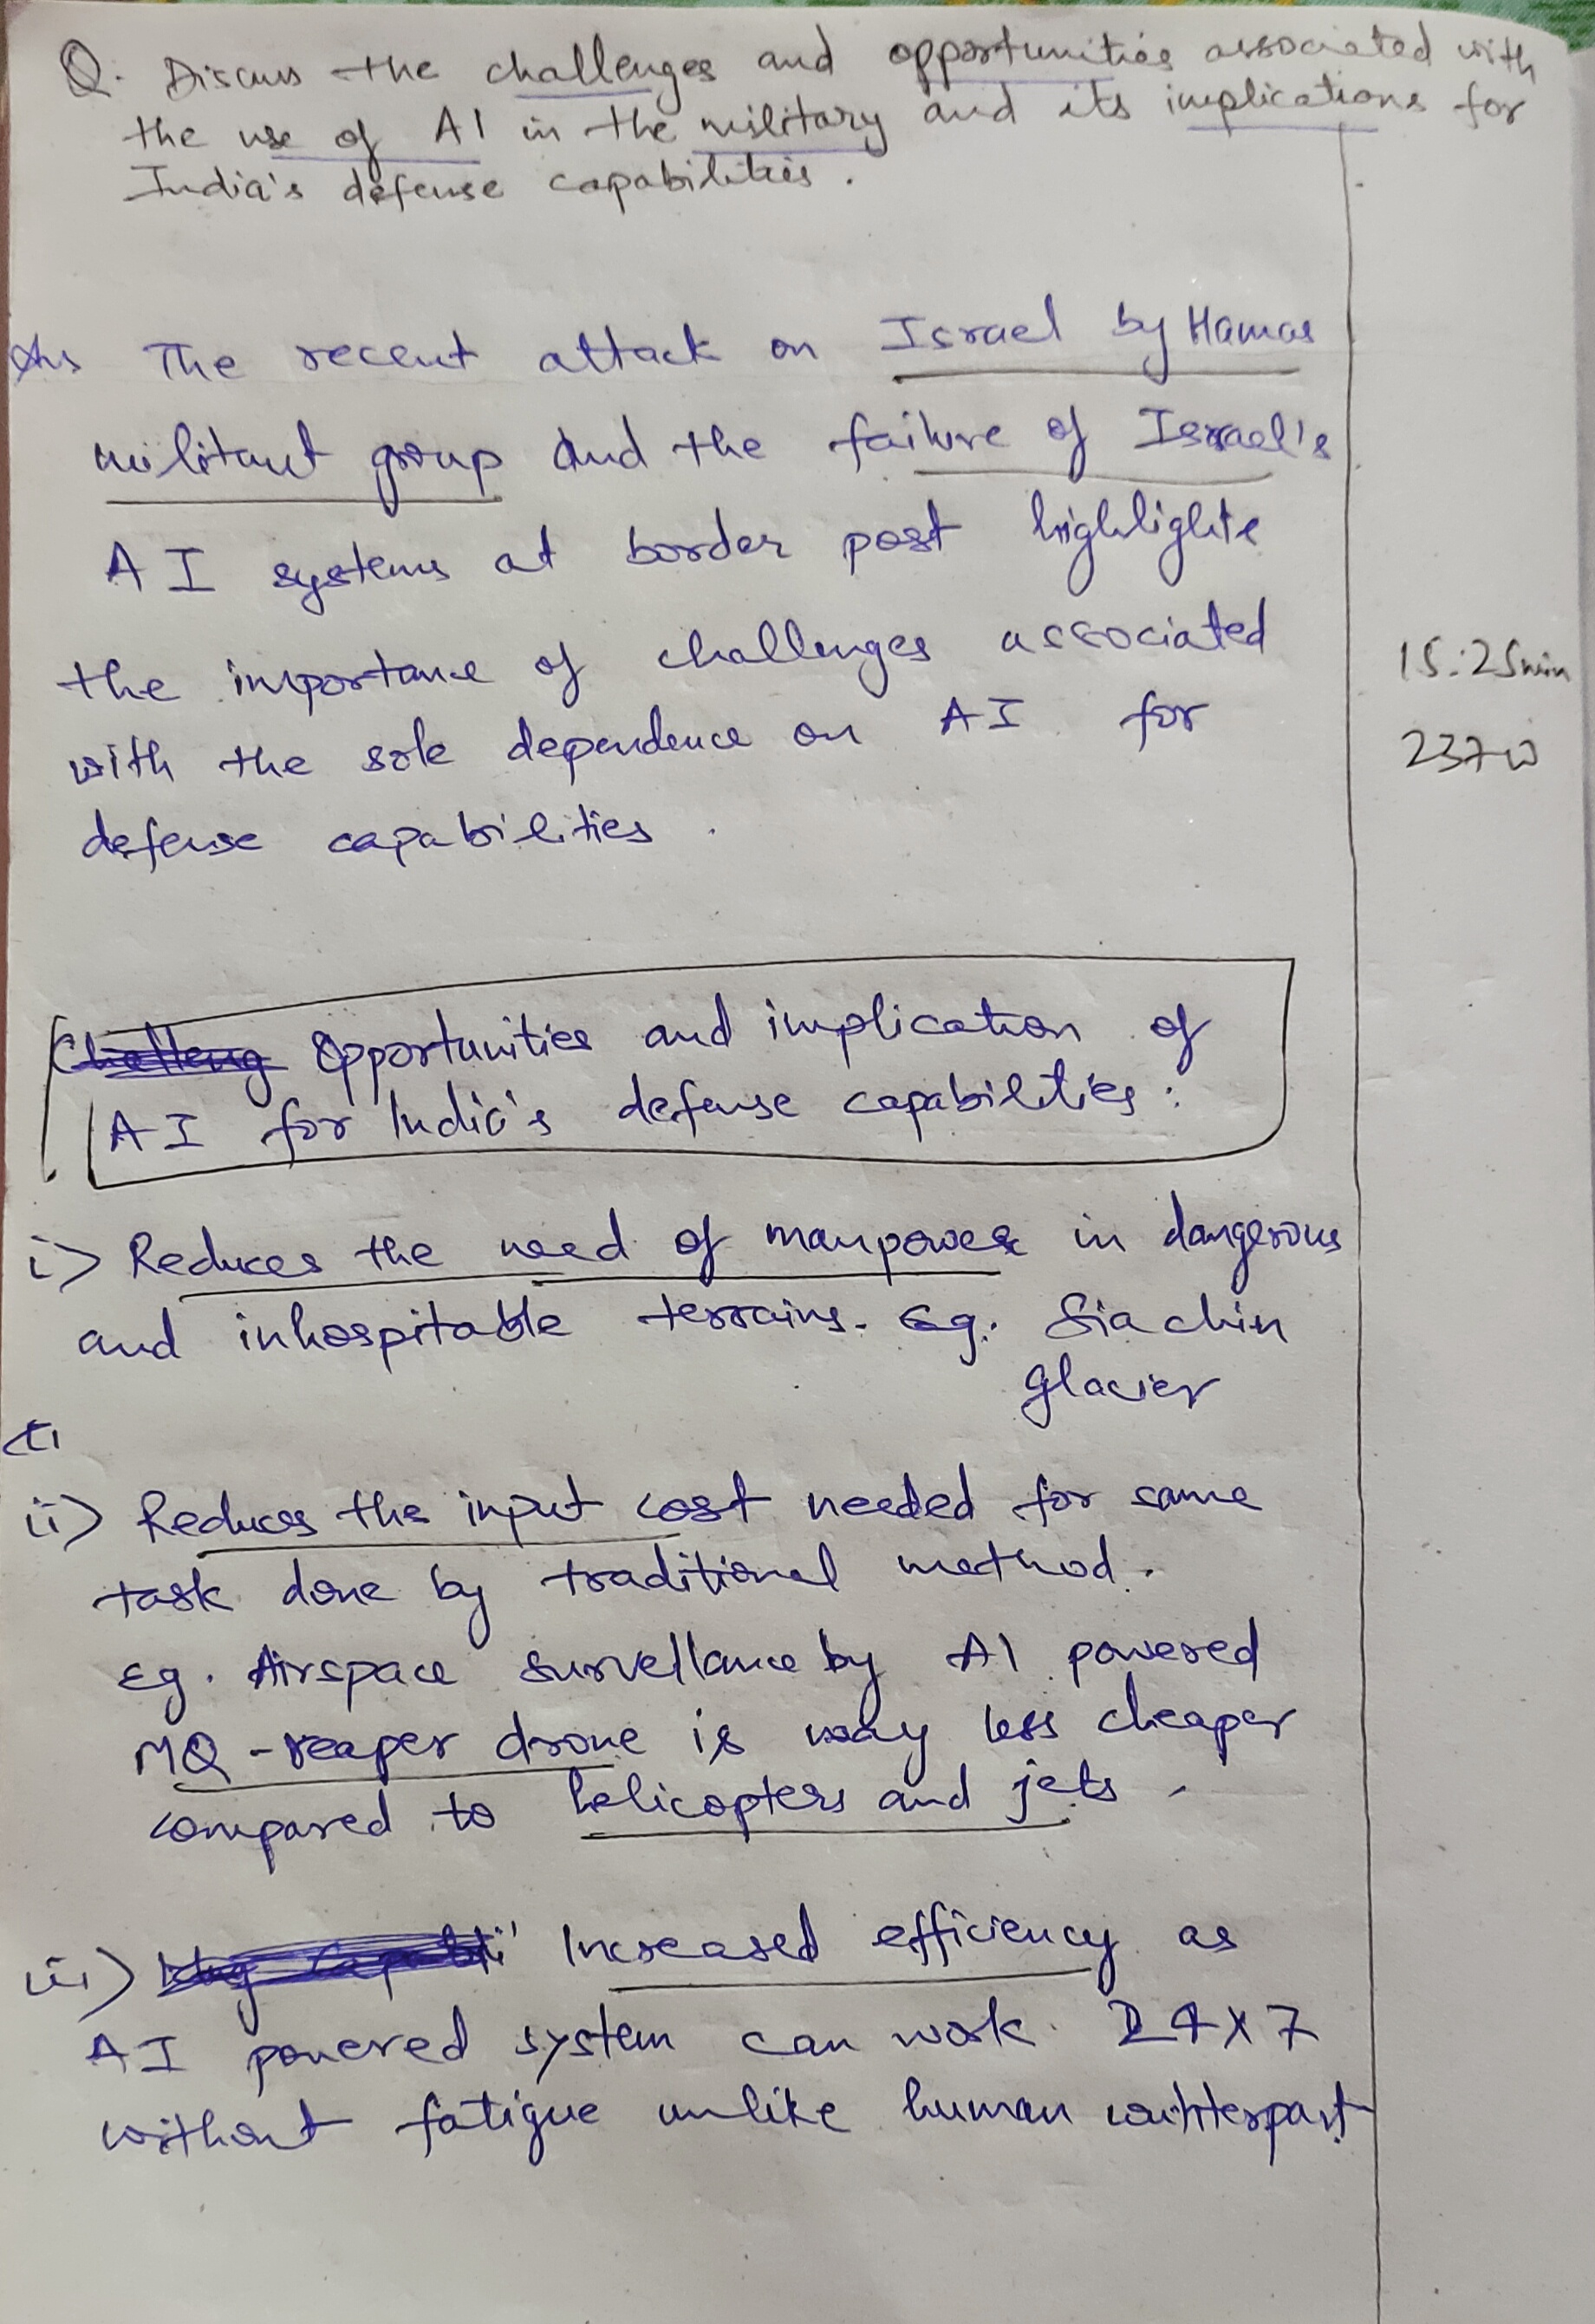 Q. Discuss the challenges and opportunities associated with
the use of AI in the military and its implications for
India's defense capabilities.
Ans The recent attack on Israel by Hamas
militant group and the failure of Israel's
AI systems at border post highlights
the importance of challenges associated
with the sole dependence on AI for
defense capabilities.
15:25min
237w
Challeng Opportunities and implication of
AI for India's defense capabilities:
i> Reduces the need of manpower in dangerous
and inhospitable terrains. Eg. Siachin
glacier
ii> Reduces the input cost needed for same
task done by traditional method.
Eg. Airspace survellance by AI powered
MQ-reaper drone is way less cheaper
compared to helicopters and jets.
iii) Increased efficiency as
AI powered system can work 24x7
without fatigue unlike human counterpart